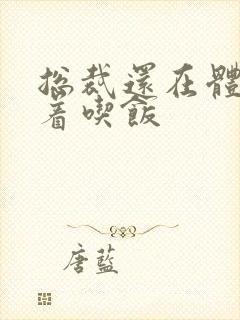 总裁還在體
着喫飯
唐藍